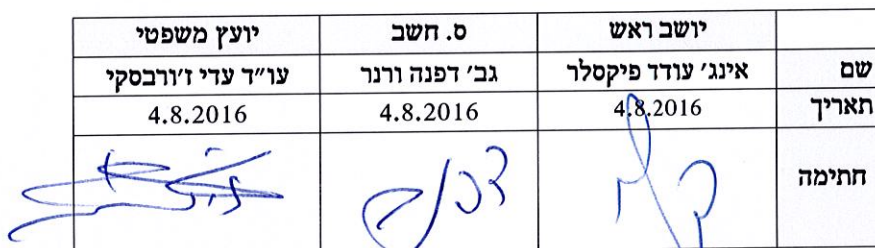 יושב ראש ס. חשב יועץ משפטי
שם אינג׳ עודד פיקסלר גב׳ דפנה ורנר עו״ד עדי ז׳ורבסקי
תאריך 4.8.2016 4.8.2016 4.8.2016
חתימה